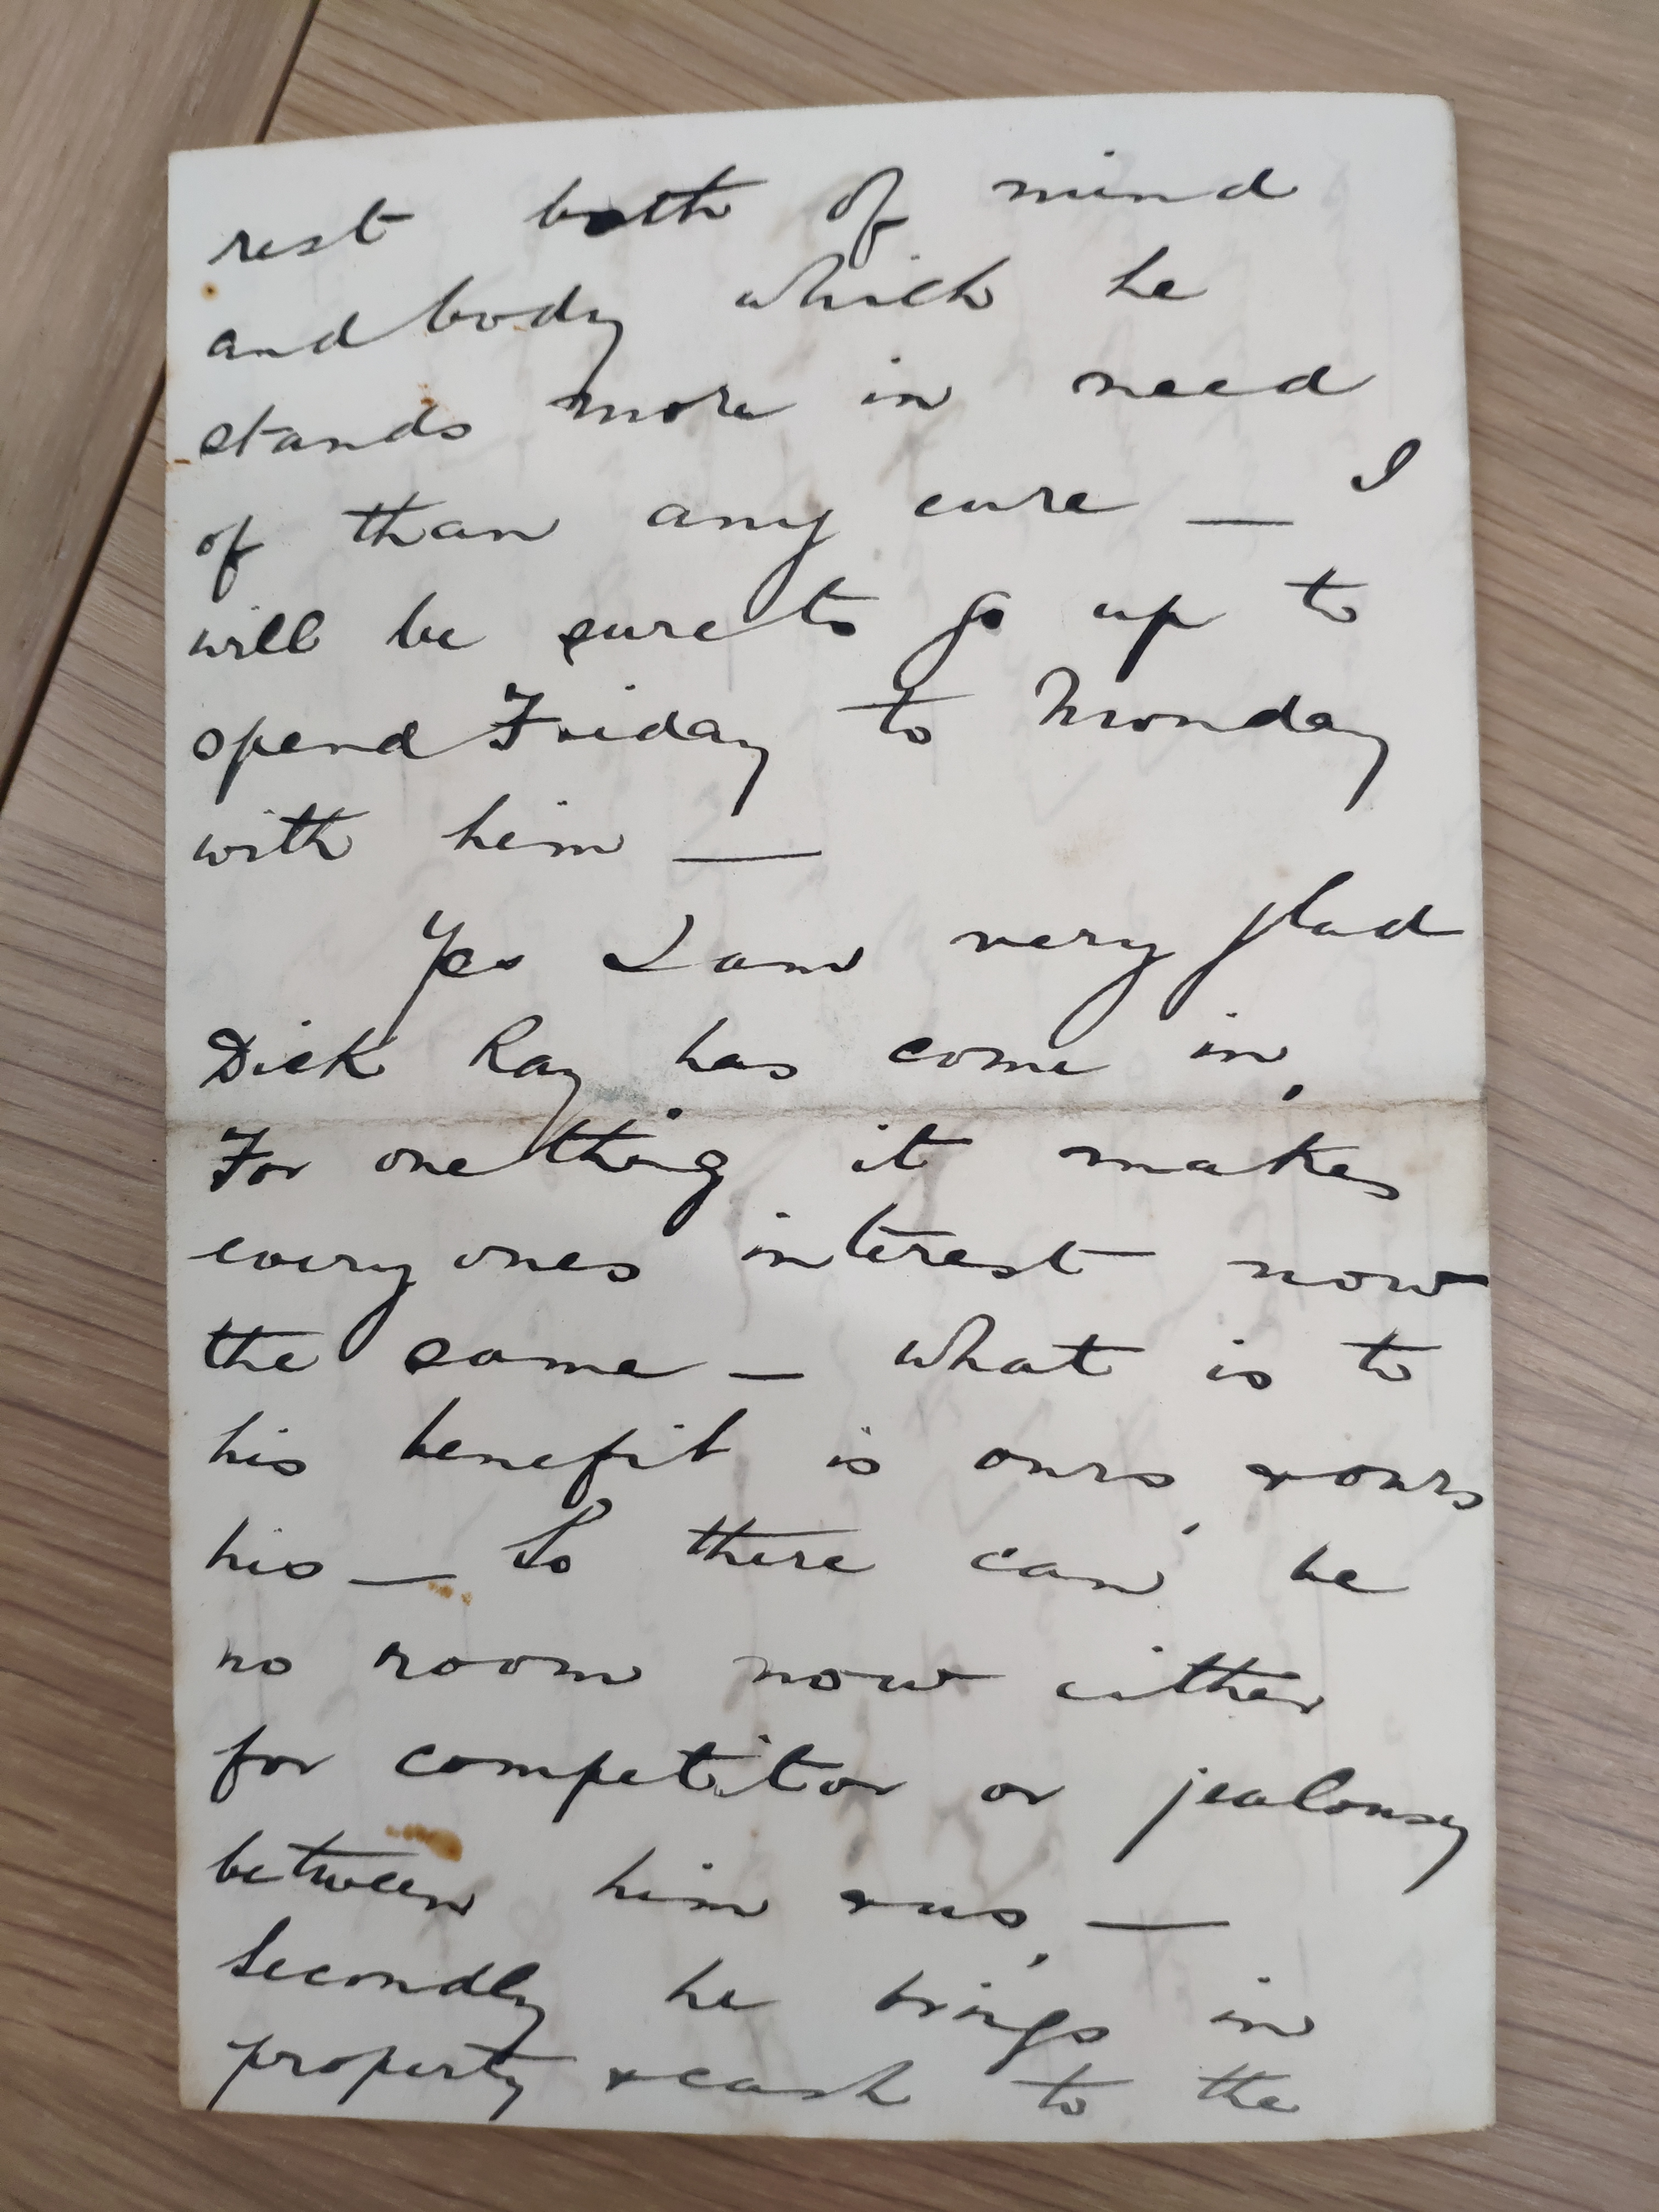 rest both of mind
and body which he
stands more in need
of than any cure — I
will be sure to go up to
spend Friday to Monday
with him —
Yes I am very glad
Dick Ray has come in,
For one thing it makes
every ones interest now
the same — what is to
his benefit is ours, & ours
his — So there can be
no room now either
for competitor or jealousy
between him & us, —
Secondly he brings in
property & cash to the